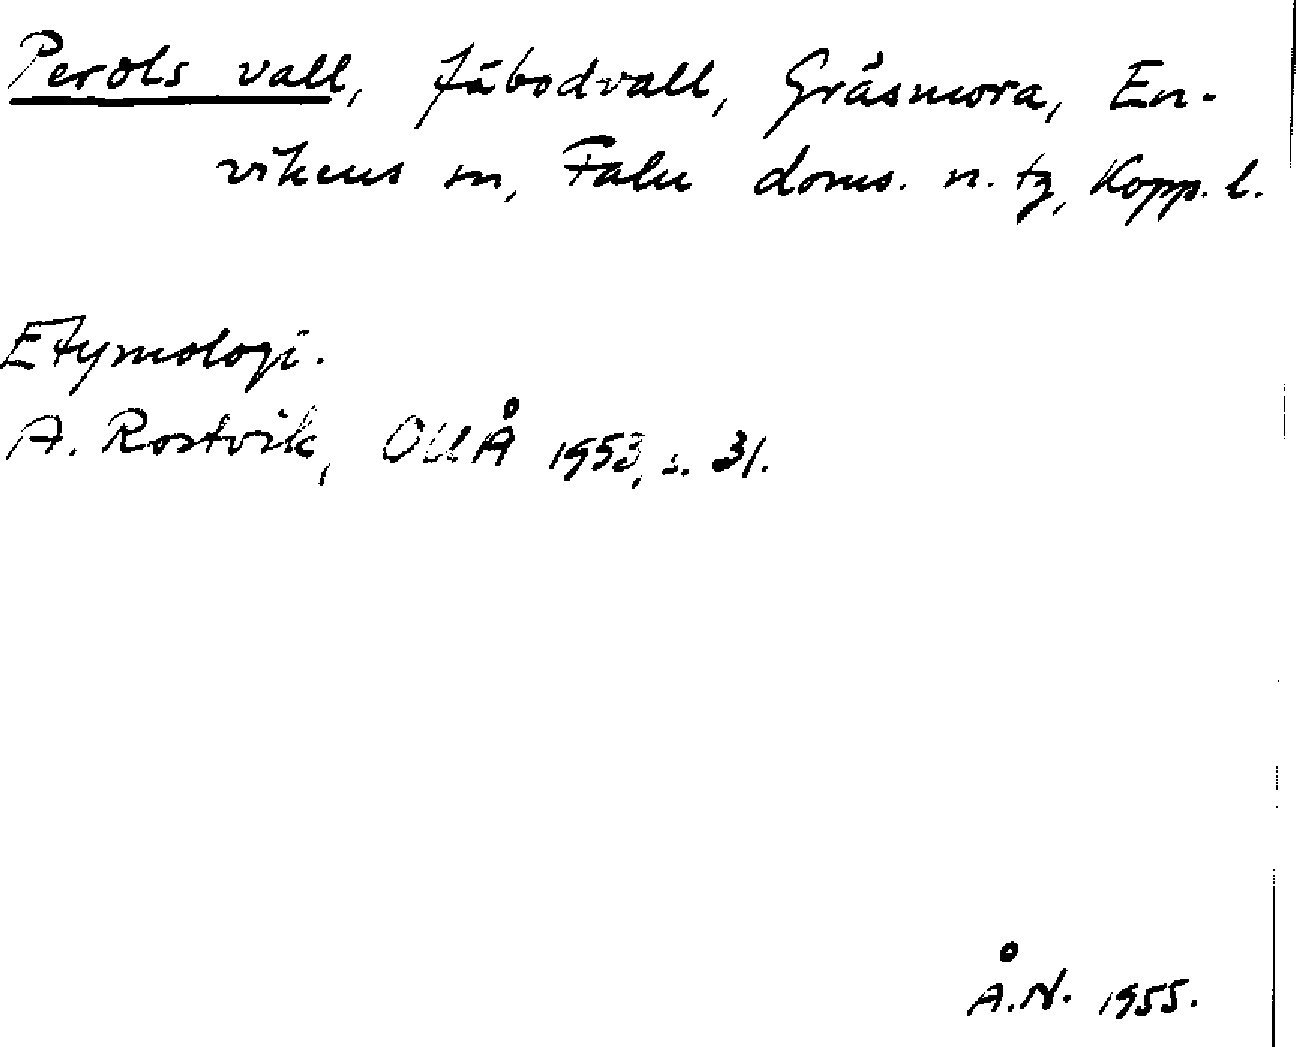 Perols vall, fäbodvall, Gräsmora, En-
vikens sn, Falu doms. n. tg, Kopp. l.
Etymologi.
A. Rostvik, OUÅ 1953, s. 31.
Å.N. 1955.